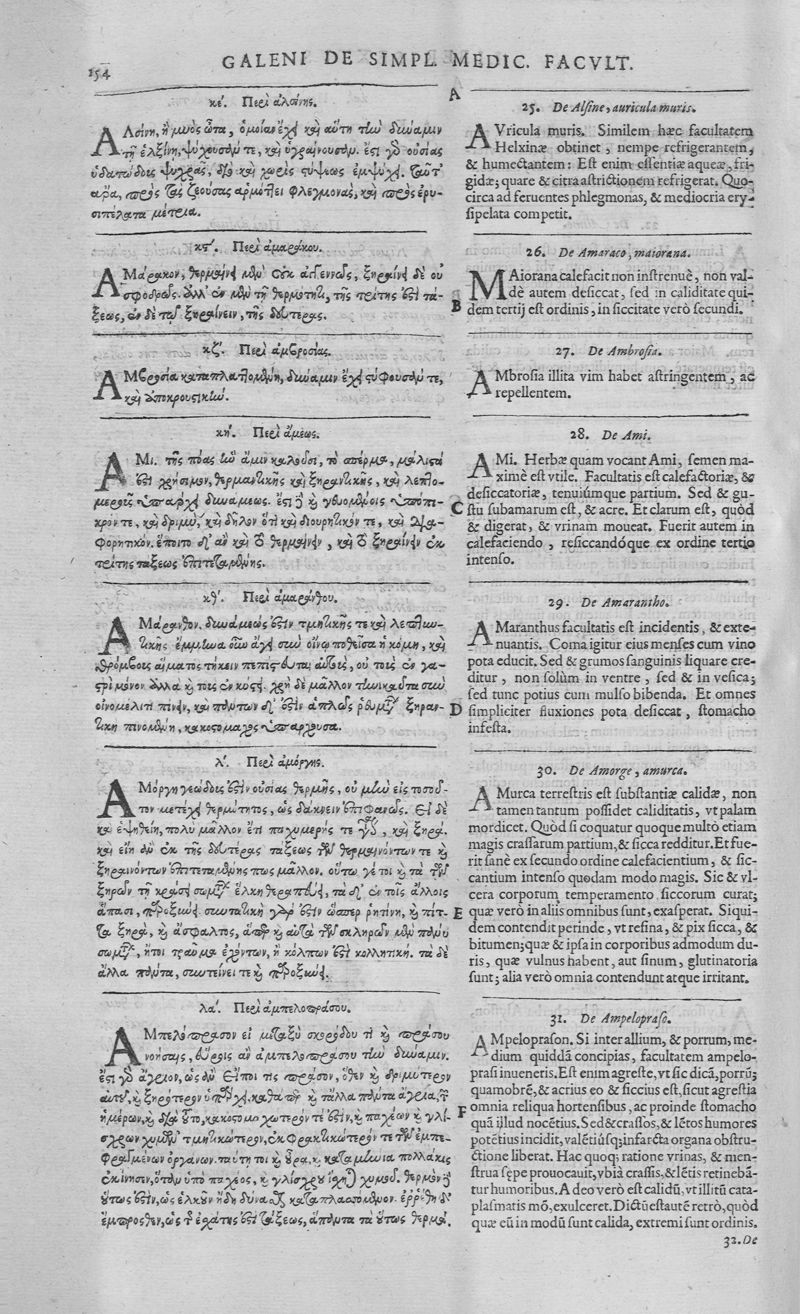 154
GALENI DE SIMPL. MEDIC. FACVLT.
κε΄. Περὶ ἀλσίνης.
ΑΛσίνη, ἢ μυὸς ὦτα, ὁμοίαν ἔχει καὶ αὕτη τὴν δύναμιν
τῇ ἑλξίνῃ, ψύχουσάν τε, καὶ ὑγραίνουσαν. ἔστι γὰρ οὐσίας
ὑδατώδους ψυχρᾶς, διὸ καὶ χωρὶς στύψεως ἐμψύχει. ταῦτ᾽
ἄρα, πρὸς τὰς ζεούσας ἁρμόττει φλεγμονὰς, καὶ πρὸς ἐρυ-
σιπέλατα μέτρια.
κϛ΄. Περὶ ἀμαράκου.
ΑΜάρακον, θερμαίνει μὲν οὐκ ἀγεννῶς, ξηραίνει δὲ οὐ
σφοδρῶς. ἀλλ᾽ ἐν μὲν τῇ θερμότητι, τῆς τρίτης ἐστὶ τά-
ξεως, ἐν δὲ τῷ ξηραίνειν, τῆς δευτέρας.
κζ΄. Περὶ ἀμβροσίας.
ΑΜβροσία καταπλαττομένη, δύναμιν ἔχει στύφουσάν τε,
καὶ ἀποκρουστικήν.
κη΄. Περὶ ἄμεως.
ΑΜΙ. τῆς πόας ἣν ἄμιν καλοῦσι, τὸ σπέρμα, μάλιστά
ἐστι χρήσιμον, θερμαντικῆς καὶ ξηραντικῆς, καὶ λεπτο-
μεροῦς ὑπάρχει δυνάμεως. ἔστι ἢ καὶ γευομένοις ὑπόπι-
κρόν τε, καὶ δριμύ, καὶ δῆλον ὅτι καὶ διουρητικόν τε, καὶ διαφο-
φορητικόν. ἕποιτο δ᾽ ἂν καὶ τὸ θερμαίνειν, καὶ τὸ ξηραίνειν ἐκ
τρίτης τάξεως ἐπιτεταμένης.
κθ΄. Περὶ ἀμαράνθου.
ΑΜάρανθον. δυνάμεώς ἐστιν τμητικῆς τε καὶ λεπτυν-
τικῆς ἔμμηνα οὖν ἄγει σὺν οἴνῳ ποθεῖσα ἡ κόμη, καὶ
θρόμβους αἵματος τήκειν πεπίστευται αὐτοὺς, οὐ τοὺς ἐν γα-
στρὶ μόνον ἀλλὰ καὶ τοὺς ἐν κύστει. χρὴ δὲ μᾶλλον τηνικαῦτα σὺν
οἰνομέλιτι πίνειν, καὶ πάντων δ᾽ ἐστὶν ἁπλῶς ῥευμάτων ξηραν-
τικὴ πινομένη, κακοστόμαχος ὑπάρχουσα.
λ΄. Περὶ ἀμόργης.
ΑΜόργη γεώδους ἐστὶν οὐσίας θερμῆς, οὐ μὴν εἰς τοσοῦ-
τον μετέχει θερμότητος, ὡς δάκνειν ἐπιφανῶς. Εἰ δὲ
καὶ ἑψηθείη, πολὺ μᾶλλον ἔτι παχυμερής τε γίνεται, καὶ ξηρά.
καὶ εἴη ἂν ἐκ τῆς δευτέρας τάξεως τῶν θερμαινόντων τε καὶ
ξηραινόντων ἐπιτεταμένης πως μᾶλλον. οὕτω γέ τοι καὶ τὰ τῶν
ξηρῶν τῇ κράσει σωμάτων ἕλκη θεραπεύει, τὰ δ᾽ ἐν τοῖς ἄλλοις
ἅπασι, παροξύνει. συντατικὴ γάρ ἐστιν ὥσπερ ῥητίνη, καὶ πίτ-
τα ξηρὰ, καὶ ἄσφαλτος, ἅπερ καὶ αὐτὰ τῶν σκληρῶν μὲν πάνυ
σωμάτων, ἤτοι τραῦμα ἐχόντων, ἢ κόλπων ἐστὶ κολλητική. τὰ δὲ
ἄλλα πάντα, συντείνει τε καὶ παροξύνει.
λα΄. Περὶ ἀμπελοπράσου.
ΑΜπελόπρασον εἰ μεταξὺ σκορόδου τι καὶ πράσου
νοήσαις, εὕροις ἂν ἀμπελοπράσου τὴν δύναμιν.
ἔστι γὰρ ἄγριον, ὡς ἂν εἴποι τις πράσον, ὅθεν καὶ δριμύτερον
αὐτοῦ, καὶ ξηρότερον ὑπάρχει, καθάπερ καὶ τἄλλα πάντα ἄγρια, τῶν
ἡμέρων, καὶ διὰ τοῦτο, κακοστομαχώτερόν τέ ἐστιν, καὶ παχέων καὶ γλί-
σχρων χυμῶν τμητικώτερον, ἐκφρακτικώτερόν τε τῶν ἐμπε-
φραγμένων ὀργάνων. ταύτῃ τοι καὶ οὖρα, καὶ καταμήνια πολλάκις
ἐκίνησεν, ὅταν ὑπὸ πάχους, καὶ γλίσχρου ἴσχηται χυμοῦ. θερμόν
οὕτως ἐστὶν, ὡς ἑλκοῦν ἤδη δύνασθαι καταπλασσόμενον. ἐῤῥέθη δὲ
ἔμπροσθεν, ὡς τῆς ἐσχάτης ἐστὶ τάξεως, ἅπαντα τὰ οὕτως θερμά.
A
25. De Alsine, auricula muris.
AVricula muris. Similem hæc facultatem
Helxinæ obtinet, nempe refrigerantem,
& humectantem: Est enim essentiæ aqueæ, fri-
gidæ; quare & citra astrictionem refrigerat. Quo-
circa ad feruentes phlegmonas, & mediocria ery-
sipelata competit.
26. De Amaraco, maiorana.
MAiorana calefacit non instrenuè, non val-
dè autem desiccat, sed in caliditate qui-
B dem tertij est ordinis, in siccitate verò secundi.
27. De Ambrosia.
AMbrosia illita vim habet astringentem, ac
repellentem.
28. De Ami.
AMi. Herbæ quam vocant Ami, semen ma-
ximè est vtile. Facultatis est calefactoriæ, &
desiccatoriæ, tenuiúmque partium. Sed & gu-
C stu subamarum est, & acre. Et clarum est, quòd
& digerat, & vrinam moueat. Fuerit autem in
calefaciendo, resiccandóque ex ordine tertio
intenso.
29. De Amarantho.
AMaranthus facultatis est incidentis, & exte-
nuantis. Coma igitur eius menses cum vino
pota educit. Sed & grumos sanguinis liquare cre-
ditur, non solùm in ventre, sed & in vesica;
sed tunc potius cum mulso bibenda. Et omnes
D simpliciter fluxiones pota desiccat, stomacho
infesta.
30. De Amorge, amurca.
AMurca terrestris est substantiæ calidæ, non
tamen tantum possidet caliditatis, vt palam
mordicet. Quòd si coquatur quoque multò etiam
magis crassarum partium, & sicca redditur. Et fue-
rit sanè ex secundo ordine calefacientium, & sic-
cantium intenso quodam modo magis. Sic & vl-
cera corporum temperamento siccorum curat;
E quæ verò in aliis omnibus sunt, exasperat. Siqui-
dem contendit perinde, vt resina, & pix sicca, &
bitumen; quæ & ipsa in corporibus admodum du-
ris, quæ vulnus habent, aut sinum, glutinatoria
sunt; alia verò omnia contendunt atque irritant.
31. De Ampelopraso.
AMpeloprason. Si inter allium, & porrum, me-
dium quiddā concipias, facultatem ampelo-
prasi inueneris. Est enim agreste, vt sic dicā, porrū;
quamobrē, & acrius eo & siccius est, sicut agrestia
F omnia reliqua hortensibus, ac proinde stomacho
quā illud nocētius. Sed & crassos, & lētos humores
potētius incidit, valētiúsq; infarcta organa obstru-
ctione liberat. Hac quoq; ratione vrinas, & men-
strua sępe prouocauit, vbi à crassis, & lētis retinebā-
tur humoribus. Adeo verò est calidū, vt illitū cata-
plasmatis mō, exulceret. Dictū est autē retrò, quòd
quæ eū in modū sunt calida, extremi sunt ordinis.
32. De